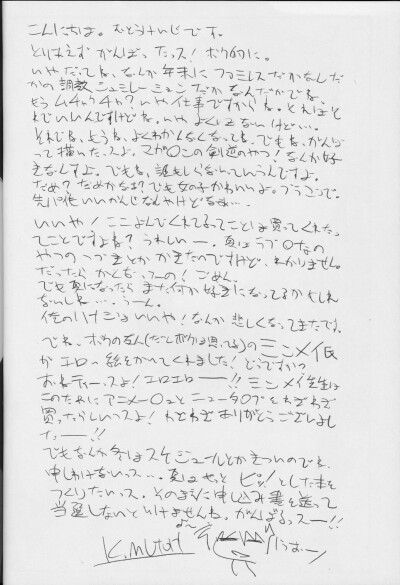 こんにちは。むとうけいじです。
とりあえずがんばったっス!ボク的に。
いやだってね、なんか年末にファミレスだかなんだ
かの調教シュミレーションだかなんだかでね、
もうムチャクチャ?いや仕事ですからね。とれほど
それでいいんですけどね。いやよくはないけど…。
それでね、もうね、よくわかんなくなってる。でもね、がんば
って描いたっスよ。マガ○ンの剣道のやつ!なんか好
きなんすよ。でもね、誰もしらないっていうんですよ。
だめ?だめかなぁ?でも女の子かわいいよ。
先パイいいかんじなんやけどなぁ…。
いいや!ここよんでくれてるってことは買ってくれたっ
てことですよね?うれしいー。真はラブ○なの
やつのつづきとかかきたいのですけど、わかりません。
だったらかくなってーの!ごめん。
でも夏になったらまた何か好きになってるかもしれ
ないしね…。うーん。
俺のハナシはいいや!なんか悲しくなってきたです。
でね、ボクの友人(だとボクは思ってる)のミンメイ氏
がエロい絵をかいてくれました!どうですか?
おねティーっスよ!エロエロー!!ミンメイ先生は
このためにアニメー○ュとニュータ○プをわざわざ
買ったらしいっスよ!わざわざありがとうございまし
たー!!
でもなんか冬はスケジュールとかきついのでね、
申しわけないっス…。夏はもっとピシッ!とした本を
つくりたいっス。そのまえに申し込み書を送って
当選しないといけませんね。がんばるっスー!!
K.MUTOH